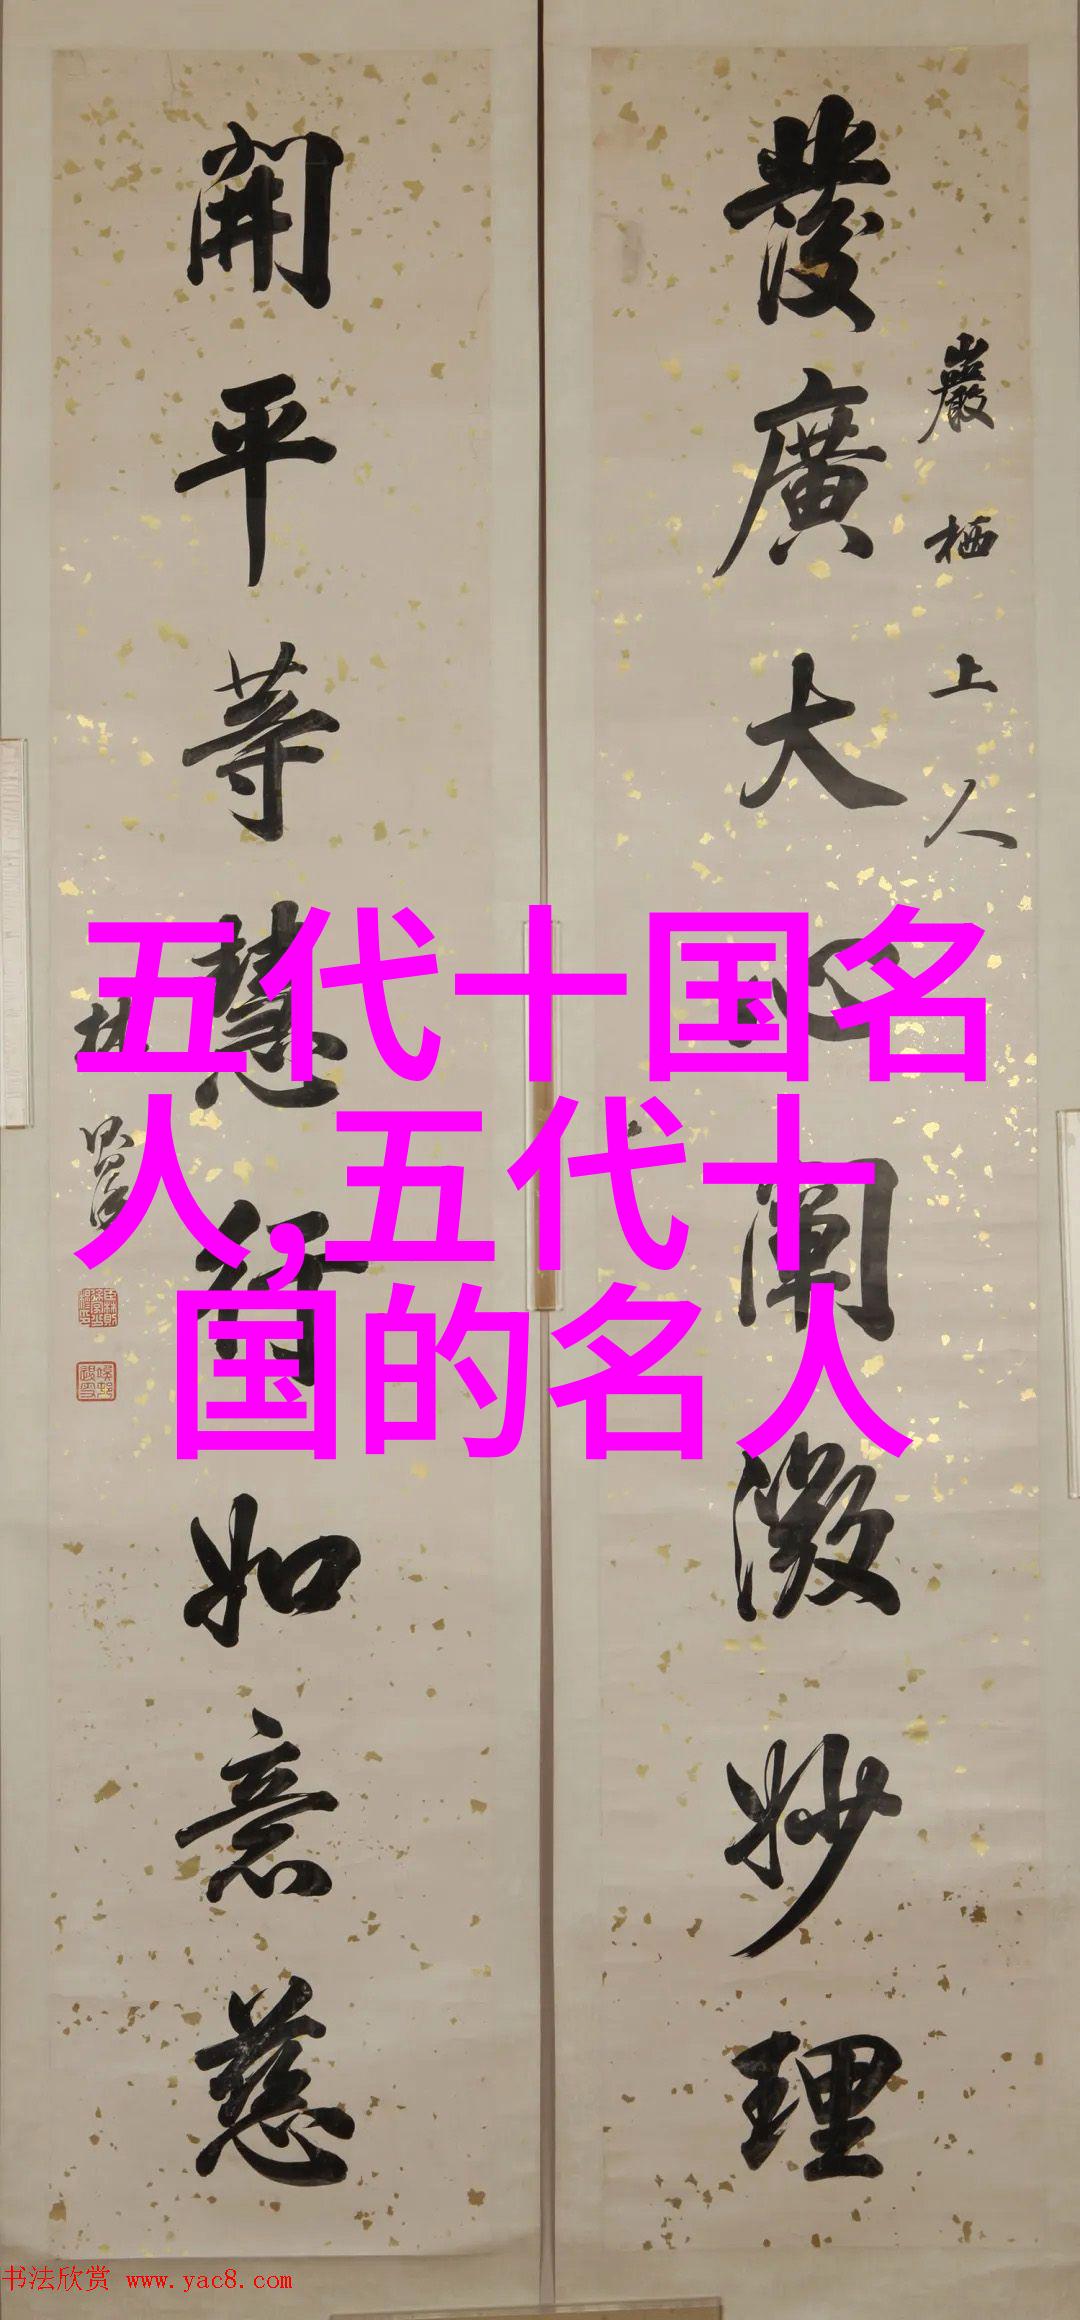 發廣大心闡微妙理
巖栖上人
開平等慧行如意慈
林
五代十国名
人,五代十
国的名人
书法欣赏 www.yac8.com